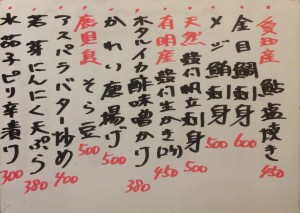 愛知産 鮎塩焼き 450
金目鯛刺身 600
メジ鮪刺身 500
天然 殻付帆立刺身 500
有明産 殻付生かき(2ヶ) 450
ホタルイカ酢味噌かけ 380
かれい唐揚げ 500
鹿児島 そら豆 500
アスパラバター炒め 400
若芽にんにく天ぷら 380
水茄子ピリ辛漬け 300